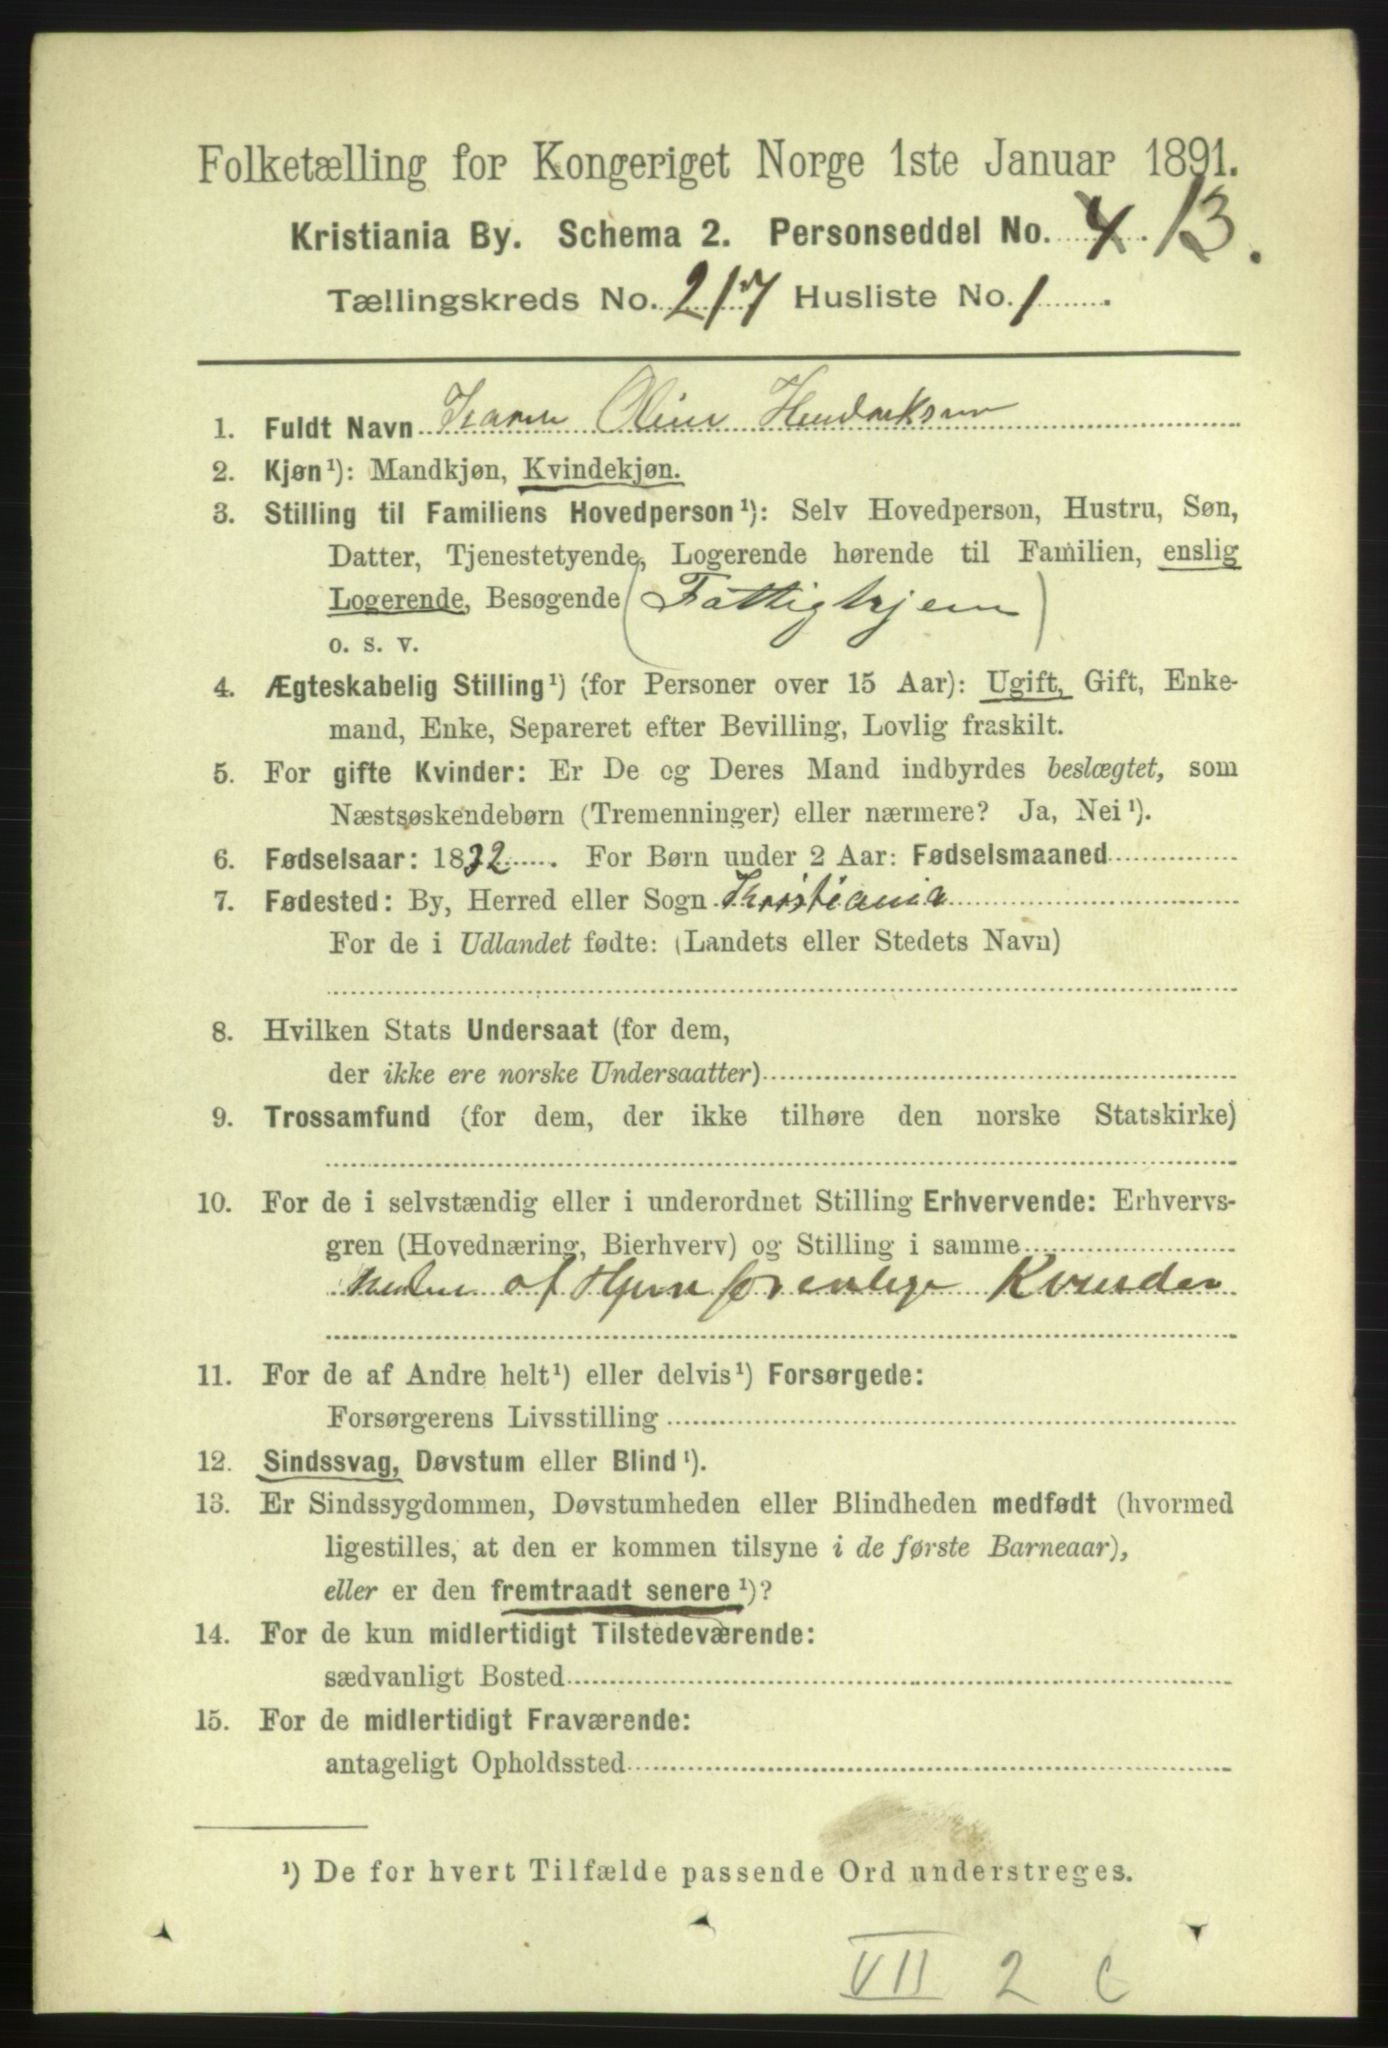 Folketælling for Kongeriget Norge 1ste Januar 1891.
Kristiania By. Schema 2. Personseddel No. 4. 13.
Tællingskreds No. 217 Husliste No. 1.
1. Fuldt Navn Karen Oline Hendriksen
2. Kjøn¹): Mandkjøn, Kvindekjøn.
3. Stilling til Familiens Hovedperson¹): Selv Hovedperson, Hustru, Søn,
Datter, Tjenestetyende, Logerende hørende til Familien, enslig
Logerende, Besøgende (Fattighjem)
o. s. v.
4. Ægteskabelig Stilling¹) (for Personer over 15 Aar): Ugift, Gift, Enke-
mand, Enke, Separeret efter Bevilling, Lovlig fraskilt.
5. For gifte Kvinder: Er De og Deres Mand indbyrdes beslægtet, som
Næstsøskendebørn (Tremenninger) eller nærmere? Ja, Nei¹).
6. Fødselsaar: 1832. For Børn under 2 Aar: Fødselsmaaned
7. Fødested: By, Herred eller Sogn Kristiania
For de i Udlandet fødte: (Landets eller Stedets Navn)
8. Hvilken Stats Undersaat (for dem,
der ikke ere norske Undersaatter)
9. Trossamfund (for dem, der ikke tilhøre den norske Statskirke)
10. For de i selvstændig eller i underordnet Stilling Erhvervende: Erhvervs-
gren (Hovednæring, Bierhverv) og Stilling i samme
af Kvinder
11. For de af Andre helt¹) eller delvis¹) Forsørgede:
Forsørgerens Livsstilling
12. Sindssvag, Døvstum eller Blind¹).
13. Er Sindssygdommen, Døvstumheden eller Blindheden medfødt (hvormed
ligestilles, at den er kommen tilsyne i de første Barneaar),
eller er den fremtraadt senere¹)?
14. For de kun midlertidigt Tilstedeværende:
sædvanligt Bosted
15. For de midlertidigt Fraværende:
antageligt Opholdssted
¹) De for hvert Tilfælde passende Ord understreges.
VII 2 c